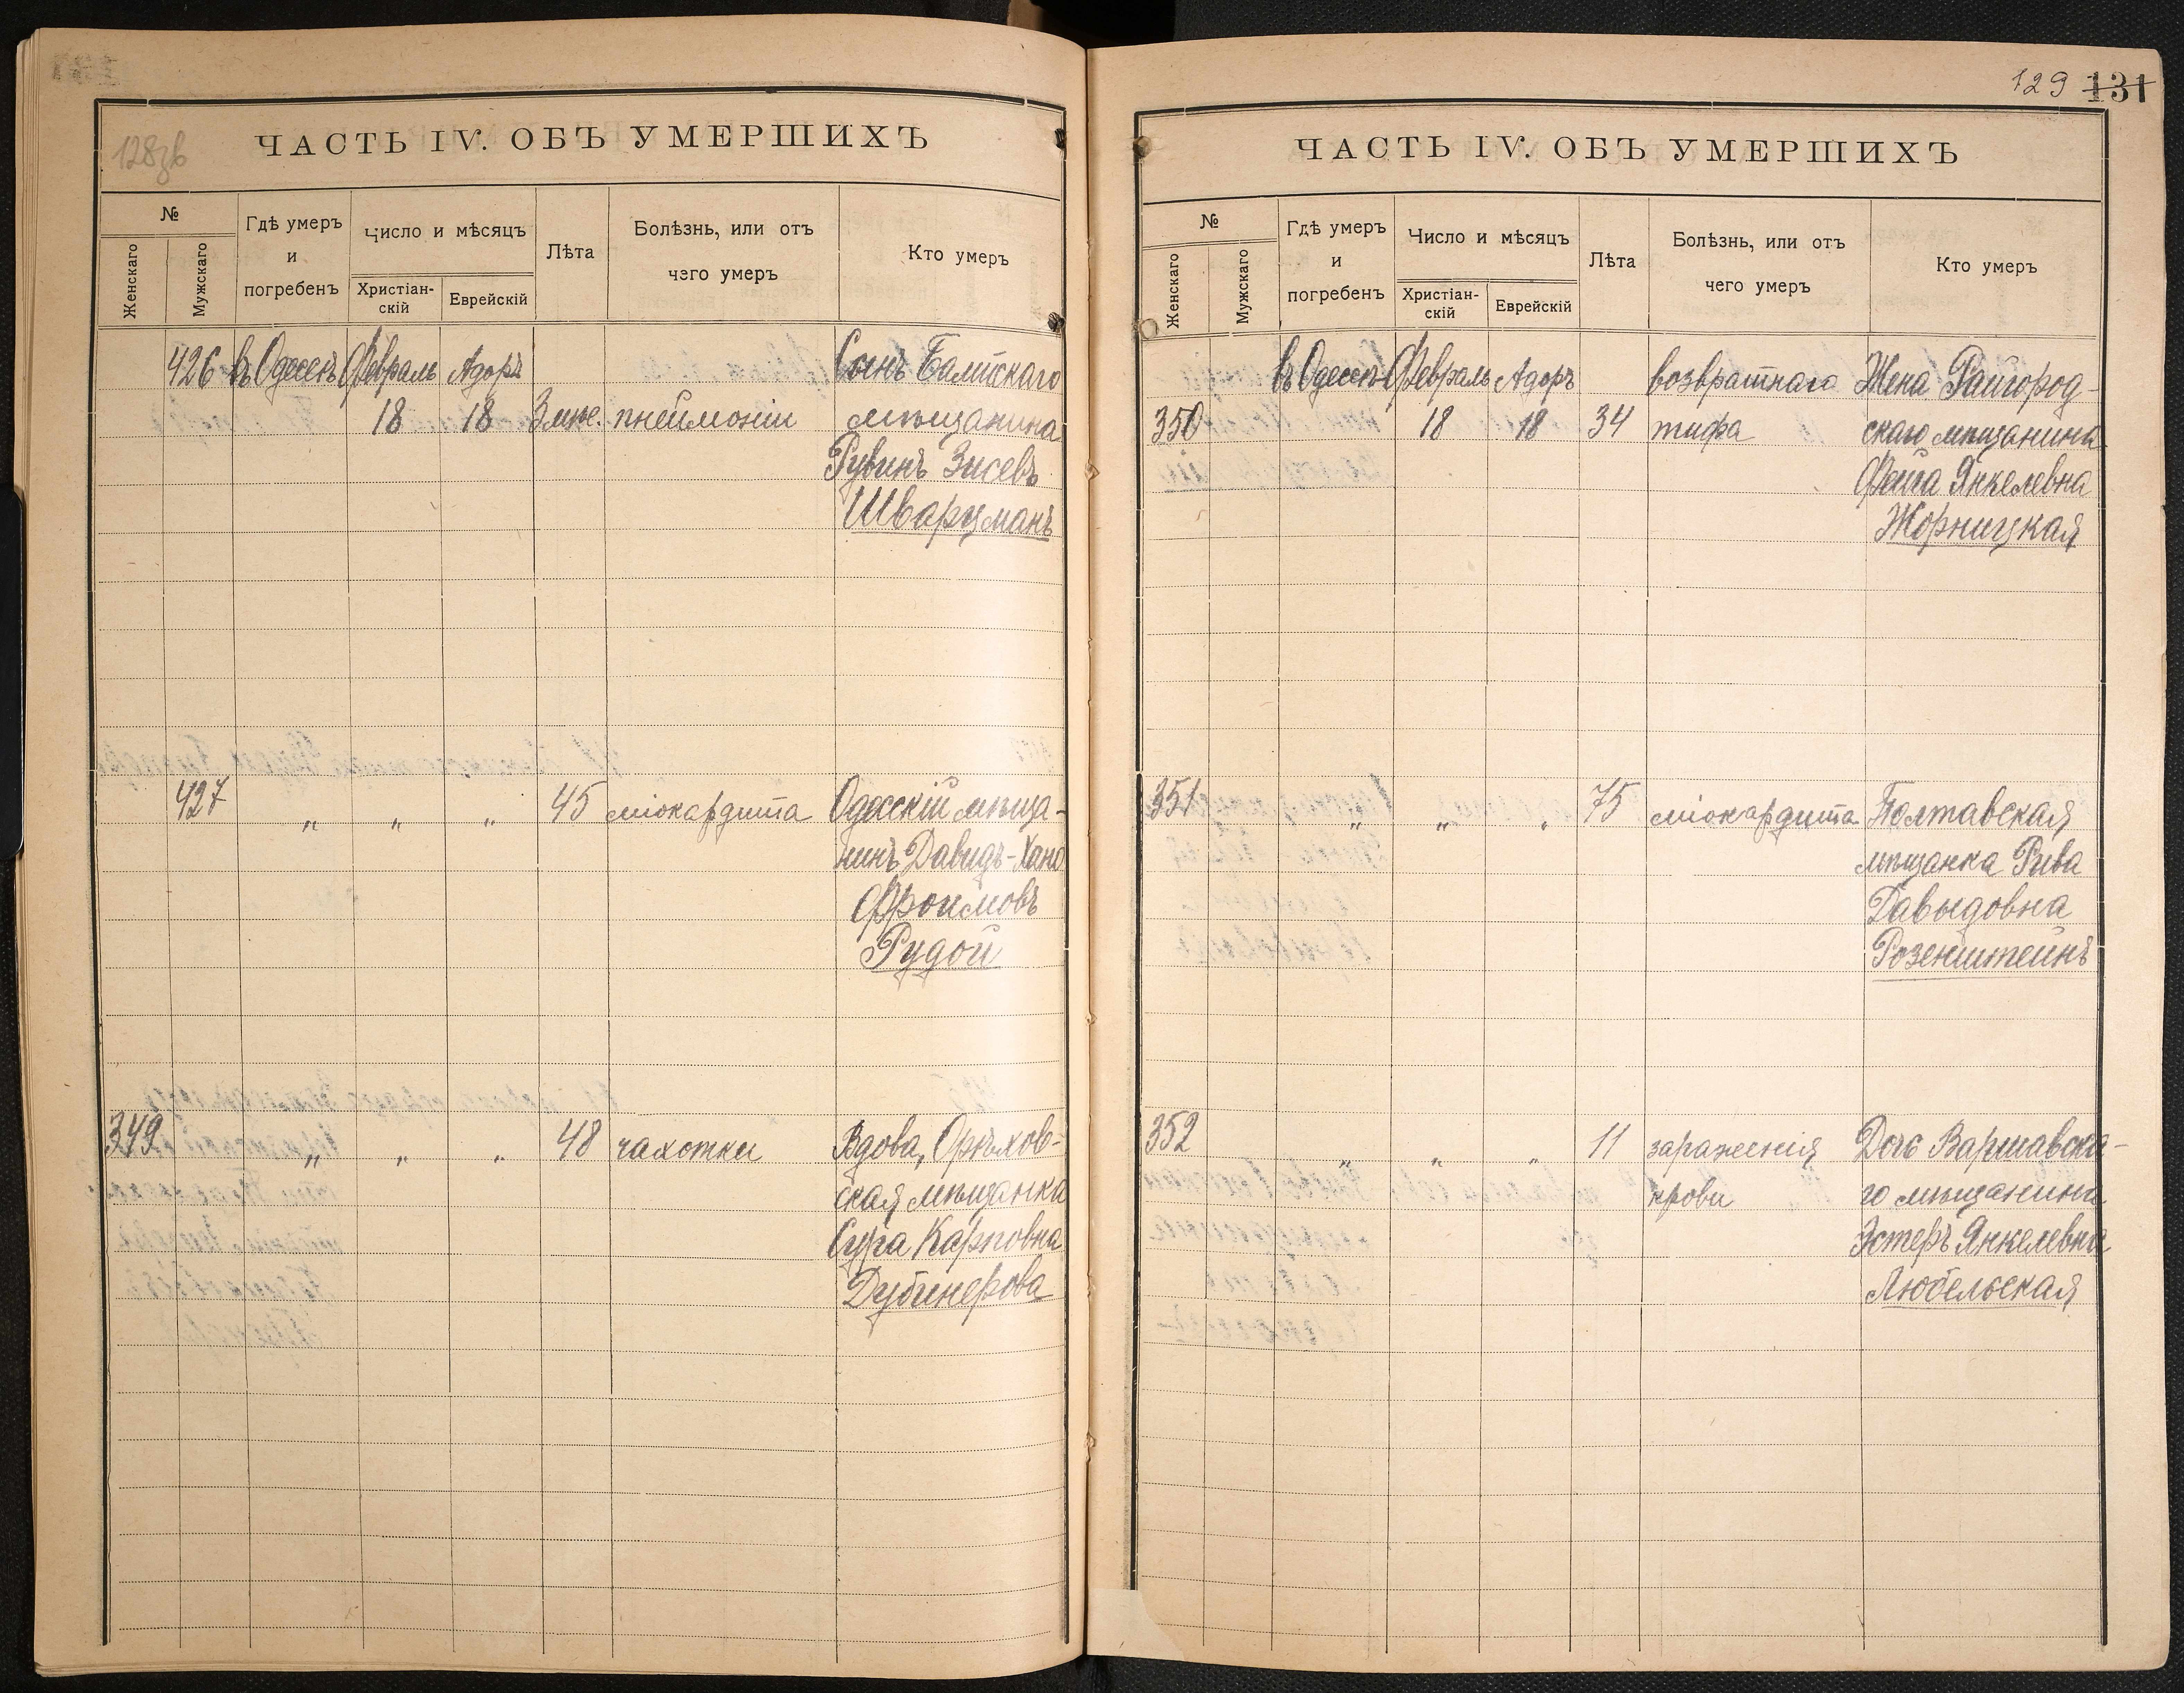 128зв
ЧАСТЬ IV. ОБЪ УМЕРШИХЪ
№
Женскаго
Мужскаго
Гдѣ умеръ
и
погребенъ
Число и мѣсяцъ
Христіан-
скій
Еврейскій
Лѣта
Болѣзнь, или отъ
чего умеръ
Кто умеръ
426 въ Одессѣ Февраль Адоръ Сынъ Балтскаго
18 18 3 мѣс. пнеймоніи мѣщанина
Рувинъ Зисевъ
Шварцманъ
427 " " " 45 міокардита Одесскій мѣща-
нинъ Давидъ-Хано
Фроимовъ
Рудой
349 " " " 48 чахотки Вдова, Орѣхов-
ская мѣщанка
Сура Карповна
Дубинерова
129 131
ЧАСТЬ IV. ОБЪ УМЕРШИХЪ
№
Женскаго
Мужскаго
Гдѣ умеръ
и
погребенъ
Число и мѣсяцъ
Христіан-
скій
Еврейскій
Лѣта
Болѣзнь, или отъ
чего умеръ
Кто умеръ
въ Одессѣ Февраль Адоръ возвратнаго Жена Райгород-
350 18 18 34 тифа скаго мѣщанина
Фейга Янкелевна
Жорницкая
351 " " " 75 міокардита Полтавская
мѣщанка Рива
Давыдовна
Розенштейнъ
352 " " " 11 зараженія Дочь Варшавска-
крови го мѣщанина
Эстеръ Янкелевна
Любельская